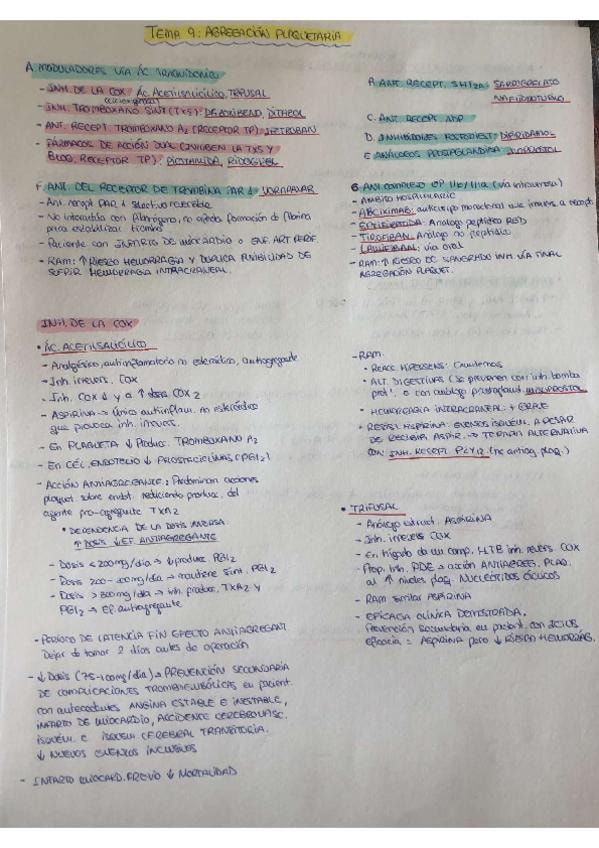 TEMA 9: AGREGACIÓN PLAQUETARIA
A. MODULADORES VÍA ÁC. ARAQUIDONICO
- INH. DE LA COX: Ác. Acetilsalicílico, TRIFUSAL
- INH. TROMBOXANO SINT (TXS): DAZOXIBENO, DITAZOL
- ANT. RECEPT. TROMBOXANO A2 (RECEPTOR TP): IFETROBAN
- FÁRMACOS DE ACCIÓN DUAL (INHIBEN LA TXS Y
BLOQ. RECEPTOR TP): PICOTAMIDA, RIDOGREL
B. ANT. RECEPT. 5HT2A: SARPOGRELATO
NAFIDROFURILO
C. ANT. RECEPT. ADP
D. INHIBIDORES FOSFODIEST: DIPIRIDAMOL
E. ANÁLOGOS PROSTAGLANDINA: ILOPROSTOL
F. ANT. DEL RECEPTOR DE TROMBINA PAR 1: VORAPAXAR
- Ant. recept PAR 1 selectivo reversible
- No interacciona con fibrinógeno, no afecta formación de fibrina
para estabilizar trombos
- Paciente con INFARTO DE MIOCARDIO o ENF. ART. PERIF.
- RAM: ↑ RIESGO HEMORRAGIA Y DUPLICA POSIBILIDAD DE
SUFRIR HEMORRAGIA INTRACRANEAL.
G. ANT. COMPLEJO GP IIb/IIIa (vía intravenosa)
- ÁMBITO HOSPITALARIO
- ABCIXIMAB: anticuerpo monoclonal
- EPTIFIBATIDA: Análogo peptídico RGD
- TIROFIBAN: Análogo no peptídico
- LAMIFIBAN: vía oral
- RAM: ↑ RIESGO DE SANGRADO INH VÍA FINAL
AGREGACIÓN PLAQUET.
INH. DE LA COX
• ÁC. ACETILSALICÍLICO
- Analgésico, antiinflamatorio no esteroideo, antiagregante
- Inh. irrevers. COX
- Inh. COX 1 y a ↑ dosis COX2
- ASPIRINA → único antiinflam. no esteroideo
que provoca inh. irrevers.
- EN PLAQUETA ↓ Produc. TROMBOXANO A2
- EN CÉL. ENDOTELIO ↓ PROSTACICLINAS (PGI2)
- ACCIÓN ANTIAGREGANTE: Predominan acciones
plaquet. sobre endot. reduciendo produc. del
agente pro-agregante TXA2
* DEPENDENCIA DE LA DOSIS INVERSA:
↑ DOSIS ↓ EF. ANTIAGREGANTE
- Dosis ≤ 200mg/día → ↓ produc. PGI2
- Dosis 200-800mg/día → mantiene sint. PGI2
- Dosis > 800mg/día → inh. produc. TXA2 y
PGI2 → EF. antiagregante
- PERÍODO DE LATENCIA FIN EFECTO ANTIAGREGANT.
Dejar de tomar 2 días antes de operación
- ↓ Dosis (75-100mg/día) → PREVENCIÓN SECUNDARIA
DE COMPLICACIONES TROMBOEMBÓLICAS EN pacient.
con antecedentes ANGINA ESTABLE E INESTABLE,
INFARTO DE MIOCARDIO, ACCIDENTE CEREBROVASC.
ISQUÉM. E ISQUEM CEREBRAL TRANSITORIA.
↓ NUEVOS EVENTOS
- INFARTO MIOCARD. PREVIO ↓ MORTALIDAD
- RAM:
• REACC. HIPERSENS: Cutáneas
• ALT. DIGESTIVAS (Se previenen con inh. bomba
prot. o con análogo prostagland. MISOPROSTOL
• HEMORRAGIA INTRACRANEAL + GRAVE
• RESIST. ASPIRINA: EVENTOS ISQUÉM. A PESAR
DE RECIBIR ASPIR. → TERAPIA ALTERNATIVA
CON: INH. RECEPT. P2Y12 (no antiag. plaq.)
• TRIFUSAL
- Análogo estruct. ASPIRINA
- Inh. irrevers COX
- En hígado da un comp. HTB inh. revers. COX
- Prop. inh. PDE → acción ANTIAGREG. PLAQ.
al ↑ niveles plaq. NUCLEÓTIDOS CÍCLICOS
- RAM similar ASPIRINA
- EFICACIA CLÍNICA DEMOSTRADA.
Prevención Secundaria en pacient. con ICTUS
eficacia = ASPIRINA pero ↓ RIESGO HEMORRAG.